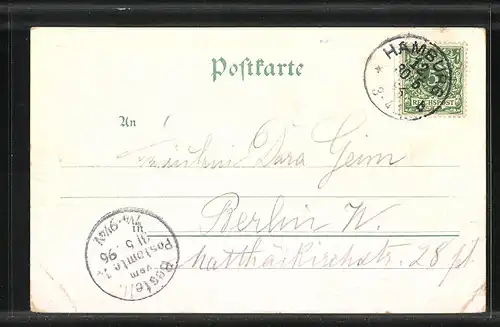 Postkarte
HAMBURG
5
REICHSPOST
An
Fräulein Dora Geim
Berlin W.
Matthäikirchstr. 28 pt.
Bestellt
vom
Postamte
5. 96